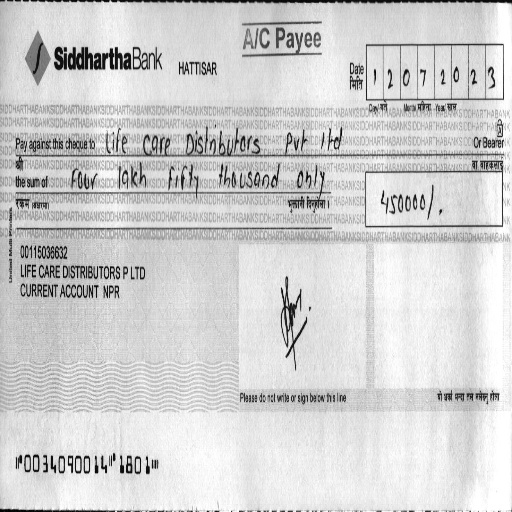 SiddharthaBank
HATTISAR
A/C Payee
Date 12072023
मिति
Day/गते Month/महिना Year/साल
Pay against this cheque to Life Care Distributors Pvt ltd Or Bearer
श्री वा वाहकलाई
the sum of Four lakh fifty thousand only
रकम अक्षरमा भुक्तानी दिनुहोला । 450000/.
00115036632
LIFE CARE DISTRIBUTORS P LTD
CURRENT ACCOUNT NPR
Please do not write or sign below this line
⑈0034090014⑈1801⑈